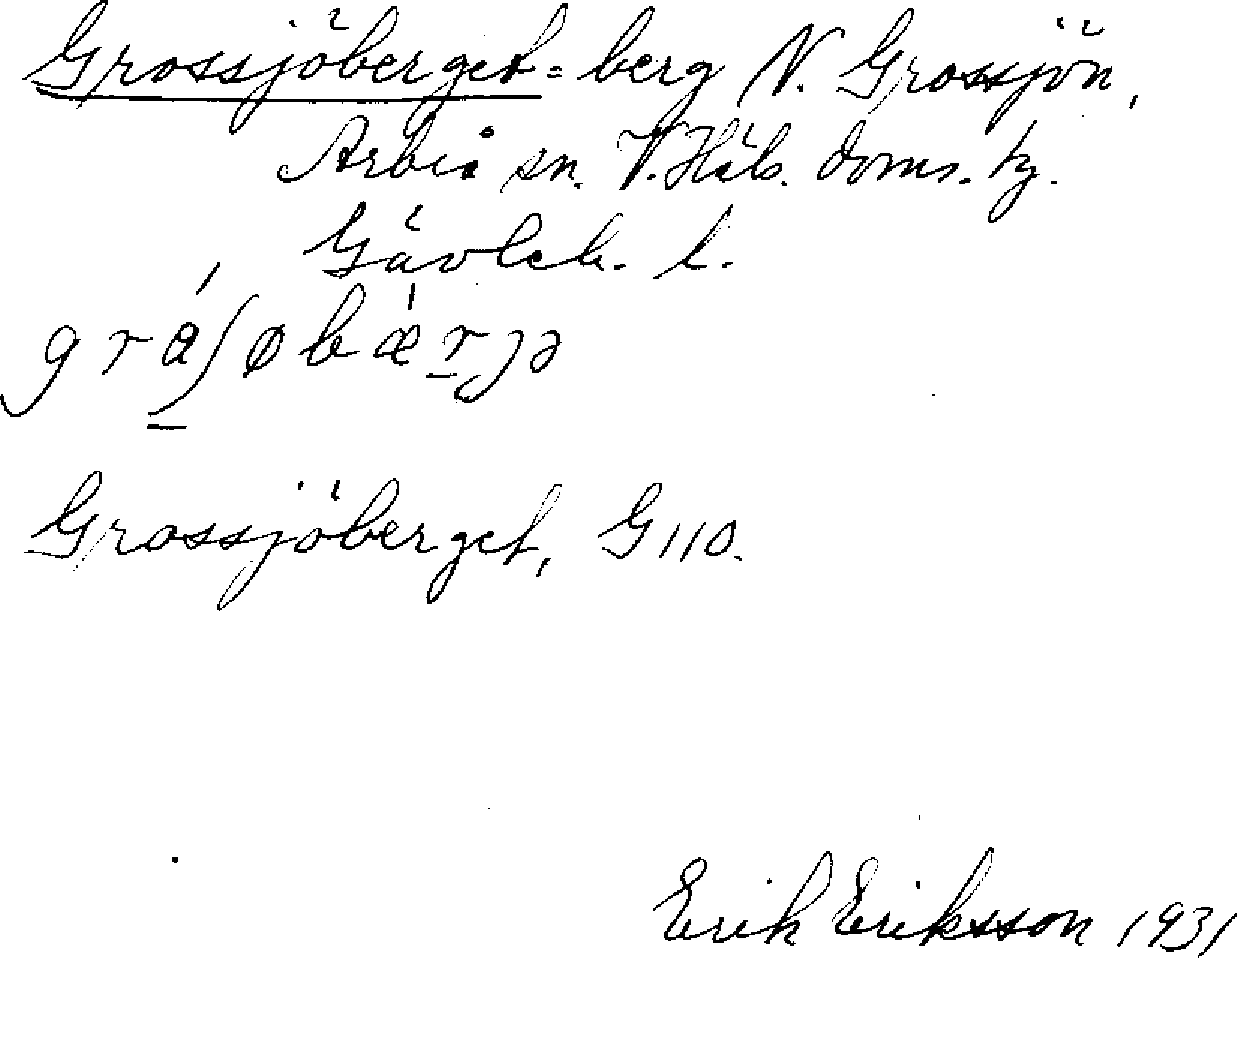 Grossjöberget = berg N. Grossjön,
Arbrå sn. V. Häls. doms. tg.
Gävleb. l.
Grossjöberget, G 110.
Erik Eriksson 1931